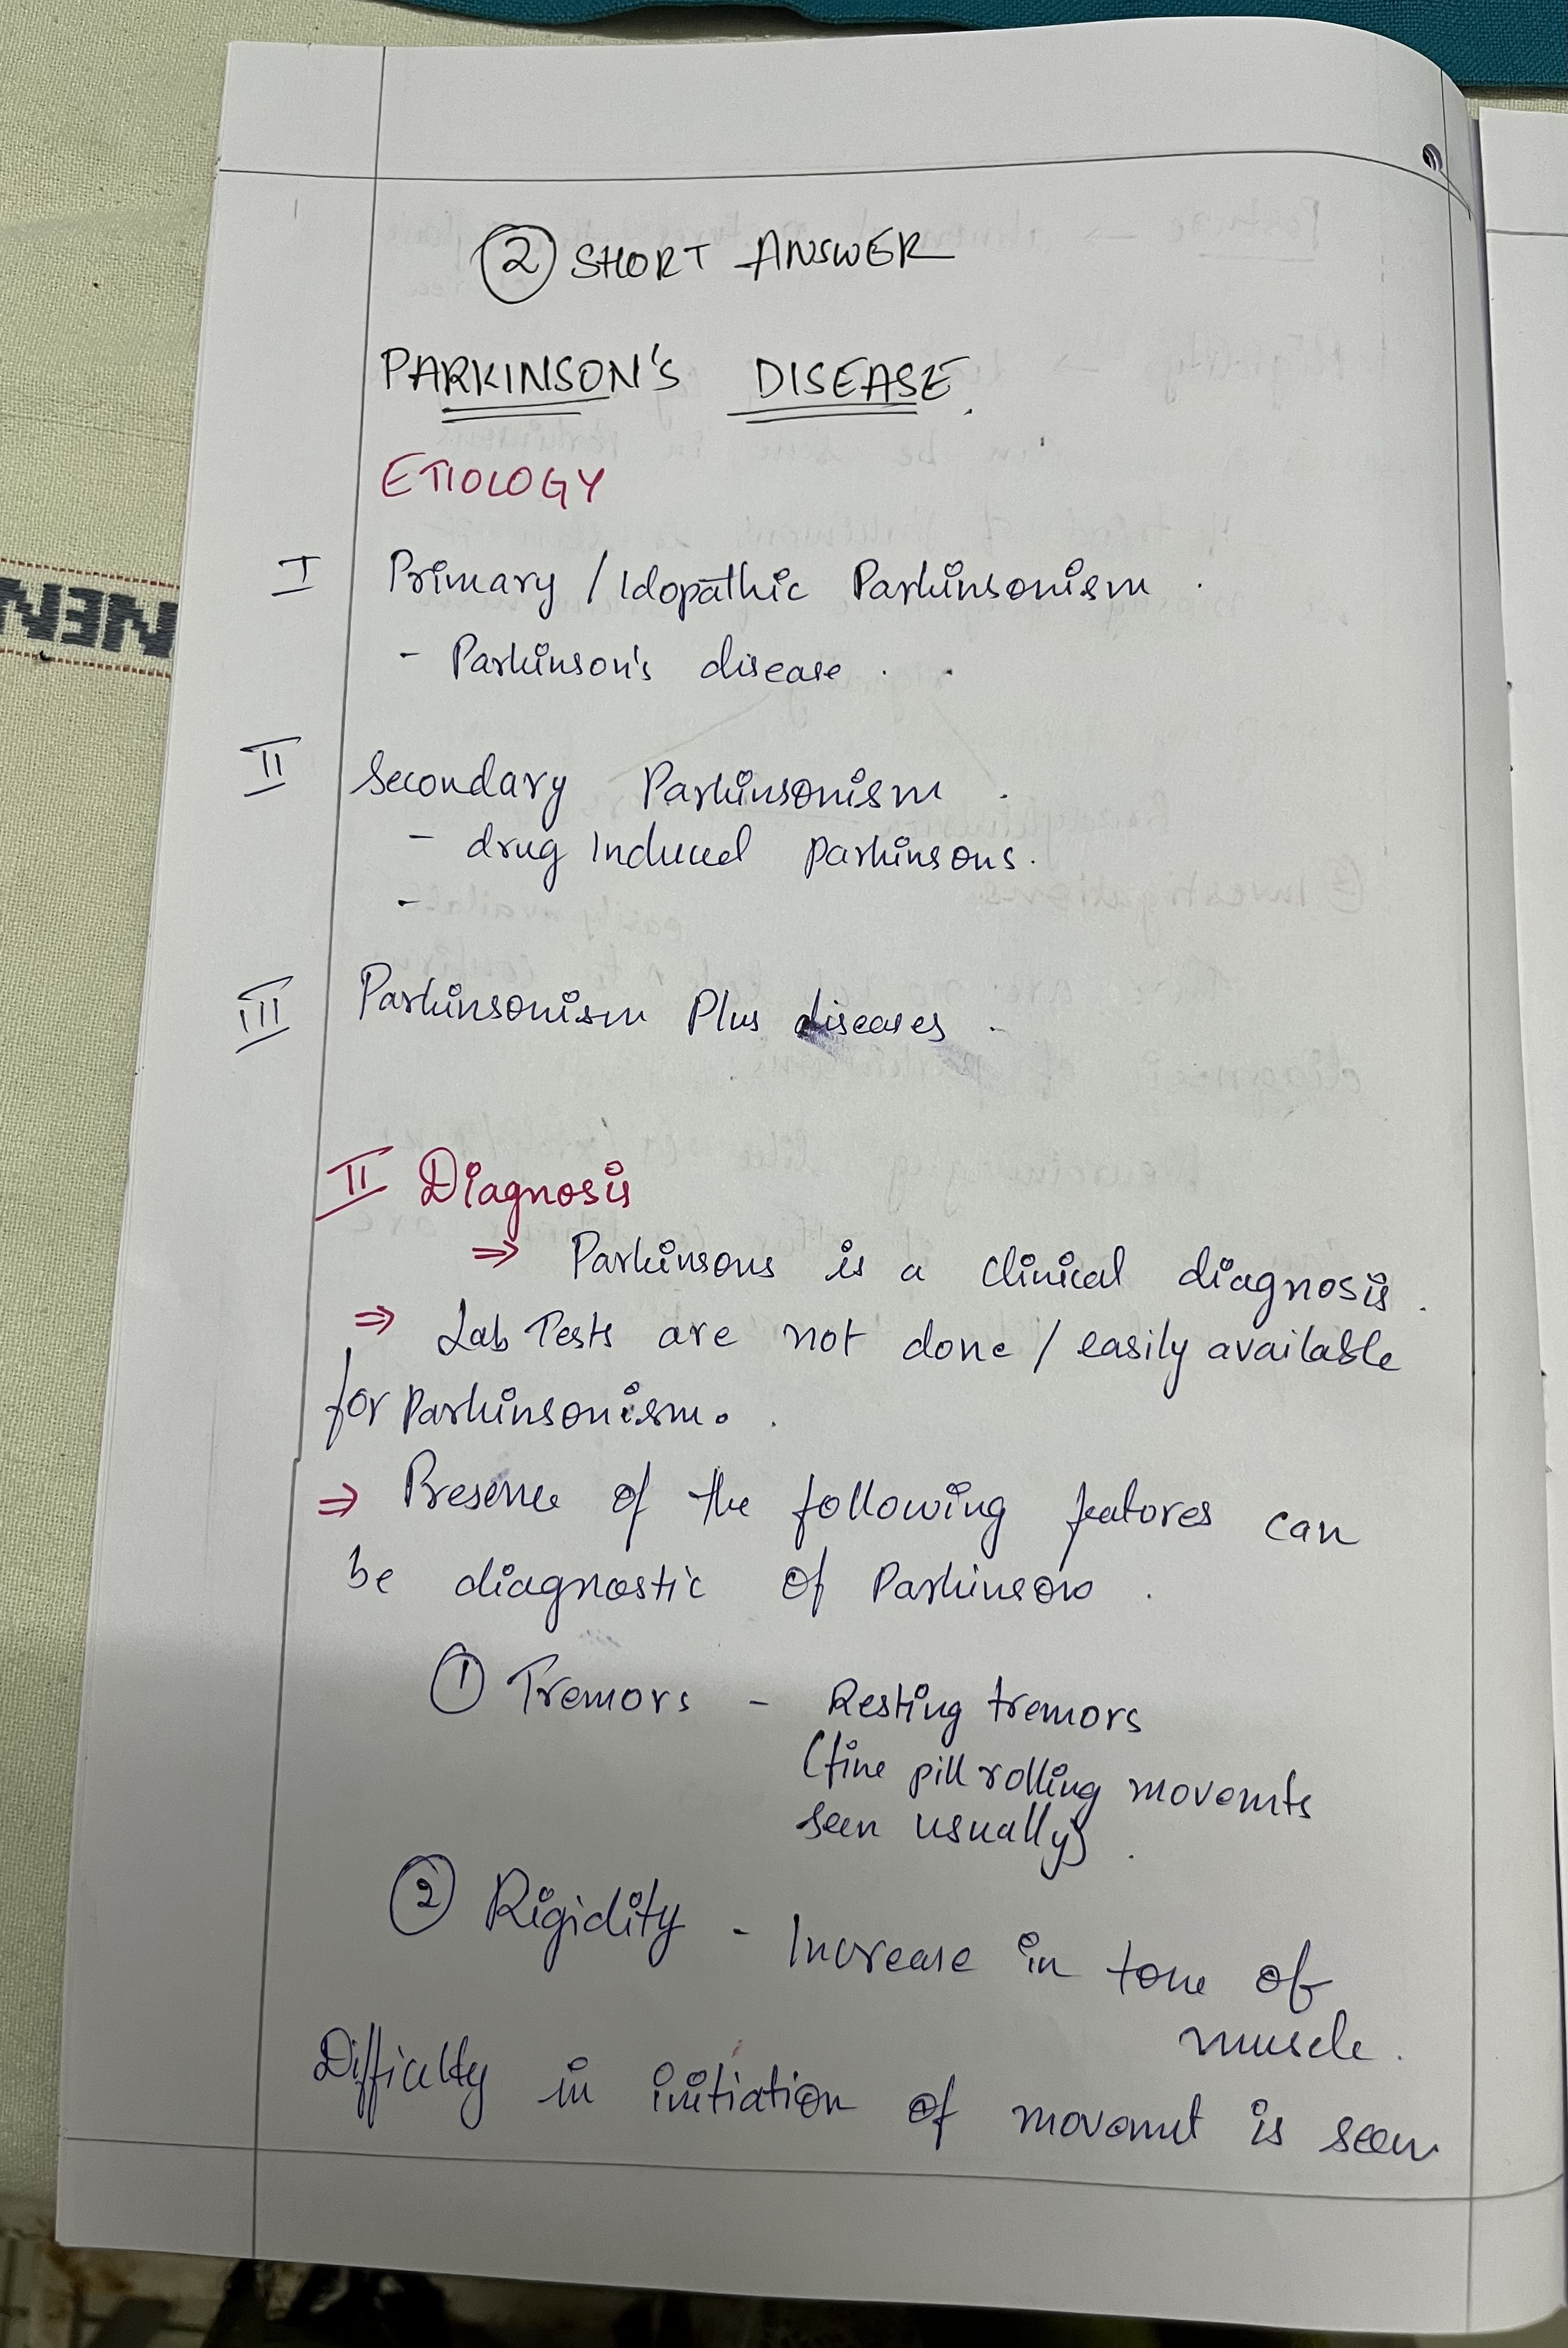 ② SHORT ANSWER
PARKINSON'S DISEASE.
ETIOLOGY
I Primary / Idopathic Parkinsonism.
- Parkinson's disease.
II Secondary Parkinsonism.
- drug Induced parkinsons.
-
III Parkinsonism Plus diseases.
II Diagnosis
⇒ Parkinsons is a clinical diagnosis.
⇒ Lab Tests are not done / easily available
for parkinsonism.
⇒ Presence of the following features can
be diagnostic of Parkinsons.
① Tremors - Resting tremors
(fine pill rolling movemts
seen usually).
② Rigidity - Increase in tone of
muscle.
Difficulty in initiation of movemnt is seen
NEN